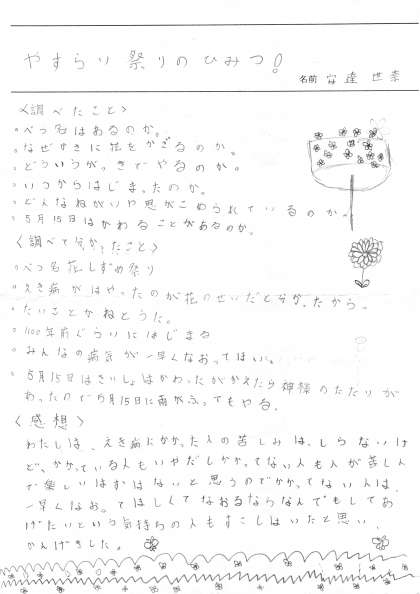 やすらい祭りのひみつ!
名前 安達 世奈
〈調べたこと〉
○べつ名はあるのか。
○なぜすきに花をかざるのか。
○どういうがっきでやるのか。
○いつからはじまったのか。
○どんなねがいや思がこめられているのか。
○5月15日はかわることがあるのか。
〈調べて分かったこと〉
○べつ名花しずめ祭り
○えき病がはやったのが花のせいだと分かったから。
○たいことかねとうた。
○1100年前ぐらいにはじまる
○みんなの病気が一早くなおってほしい。
○5月15日はさいしょはかわったがかえたら神様のたたりが
あったので5月15日に雨がふってもやる。
〈感想〉
わたしは、えき病にかかった人の苦しみは、しらないけ
ど、かかっている人もいやだしかかってない人も人が苦しん
で楽しいはずはないと思うのでかかってない人は、
一早くなおってほしくてなおるならなんでもしてあ
げたいという気持ちの人もすこしはいたと思い、
かんげきした。